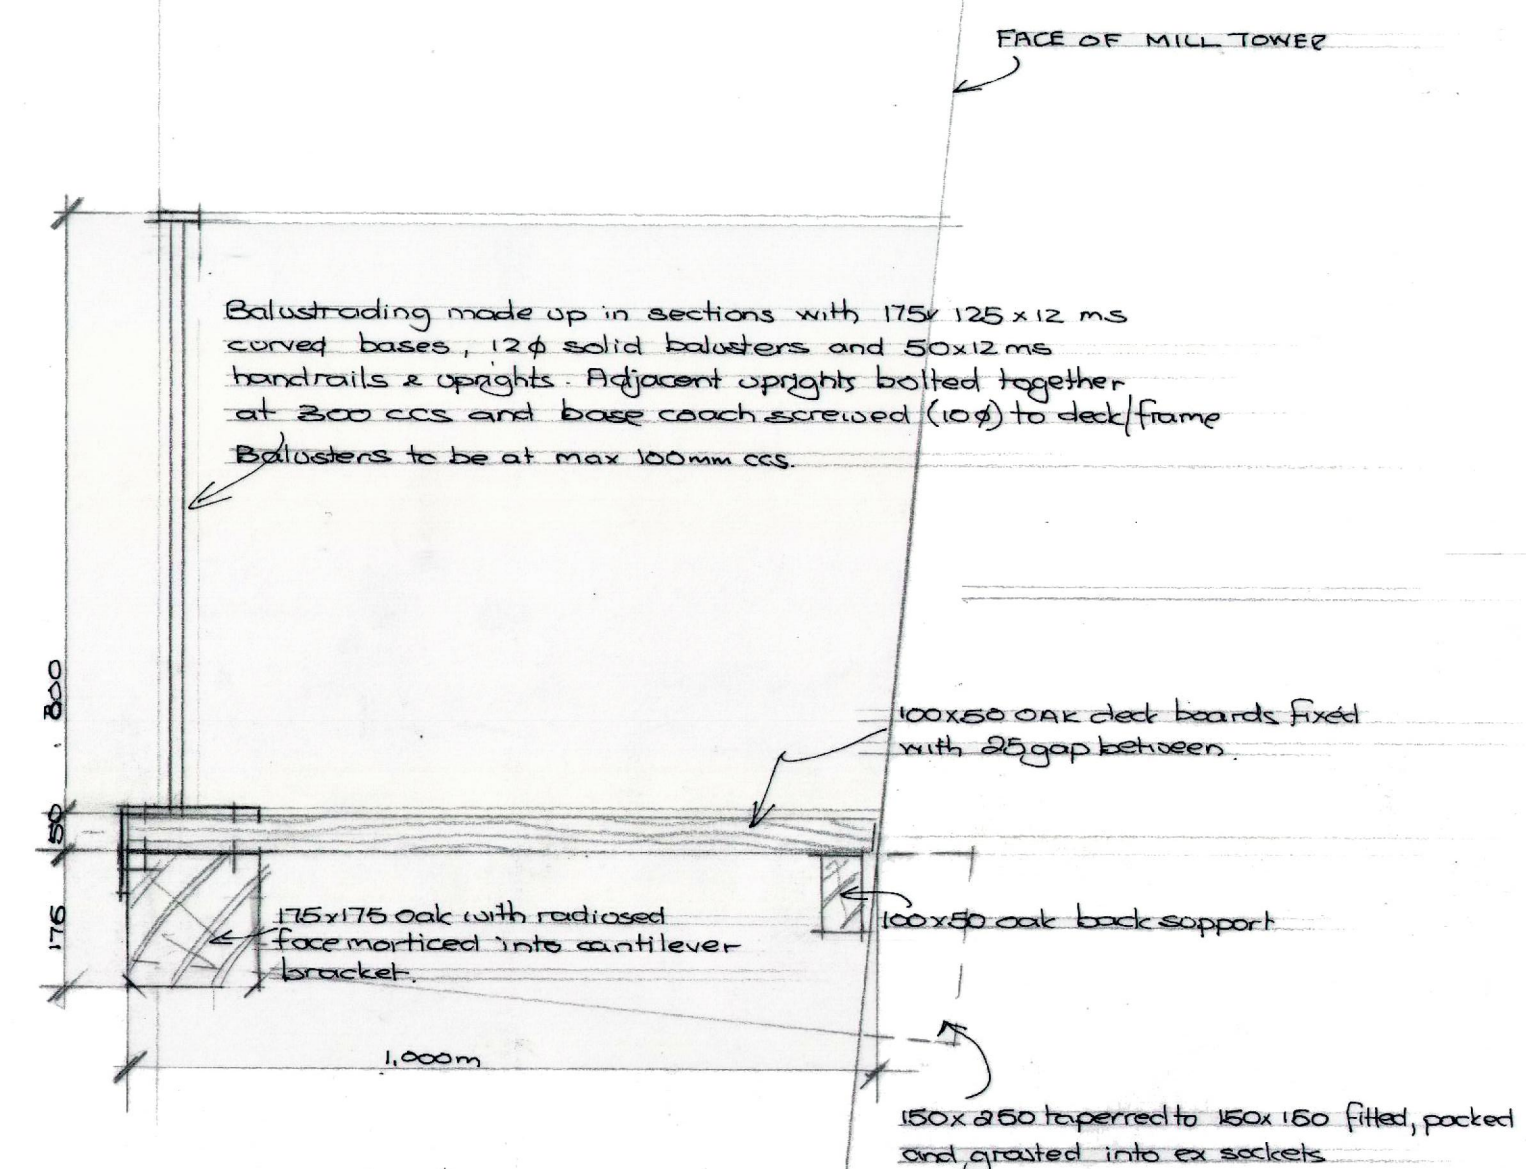 FACE OF MILL TOWER
Balustrading made up in sections with 175x 125 x 12 ms
curved bases, 12ϕ solid balusters and 50x12 ms
handrails & uprights. Adjacent uprights bolted together
at 300 ccs and base coach screwed (10ϕ) to deck/frame
Balusters to be at max 100mm ccs.
800
100x50 OAK deck boards fixed
with 25 gap between.
50
175x175 Oak with radiused
face morticed into cantilever
bracket.
100x50 oak back support
175
1,000m
150x250 taperred to 150x150 fitted, packed
and grouted into ex sockets